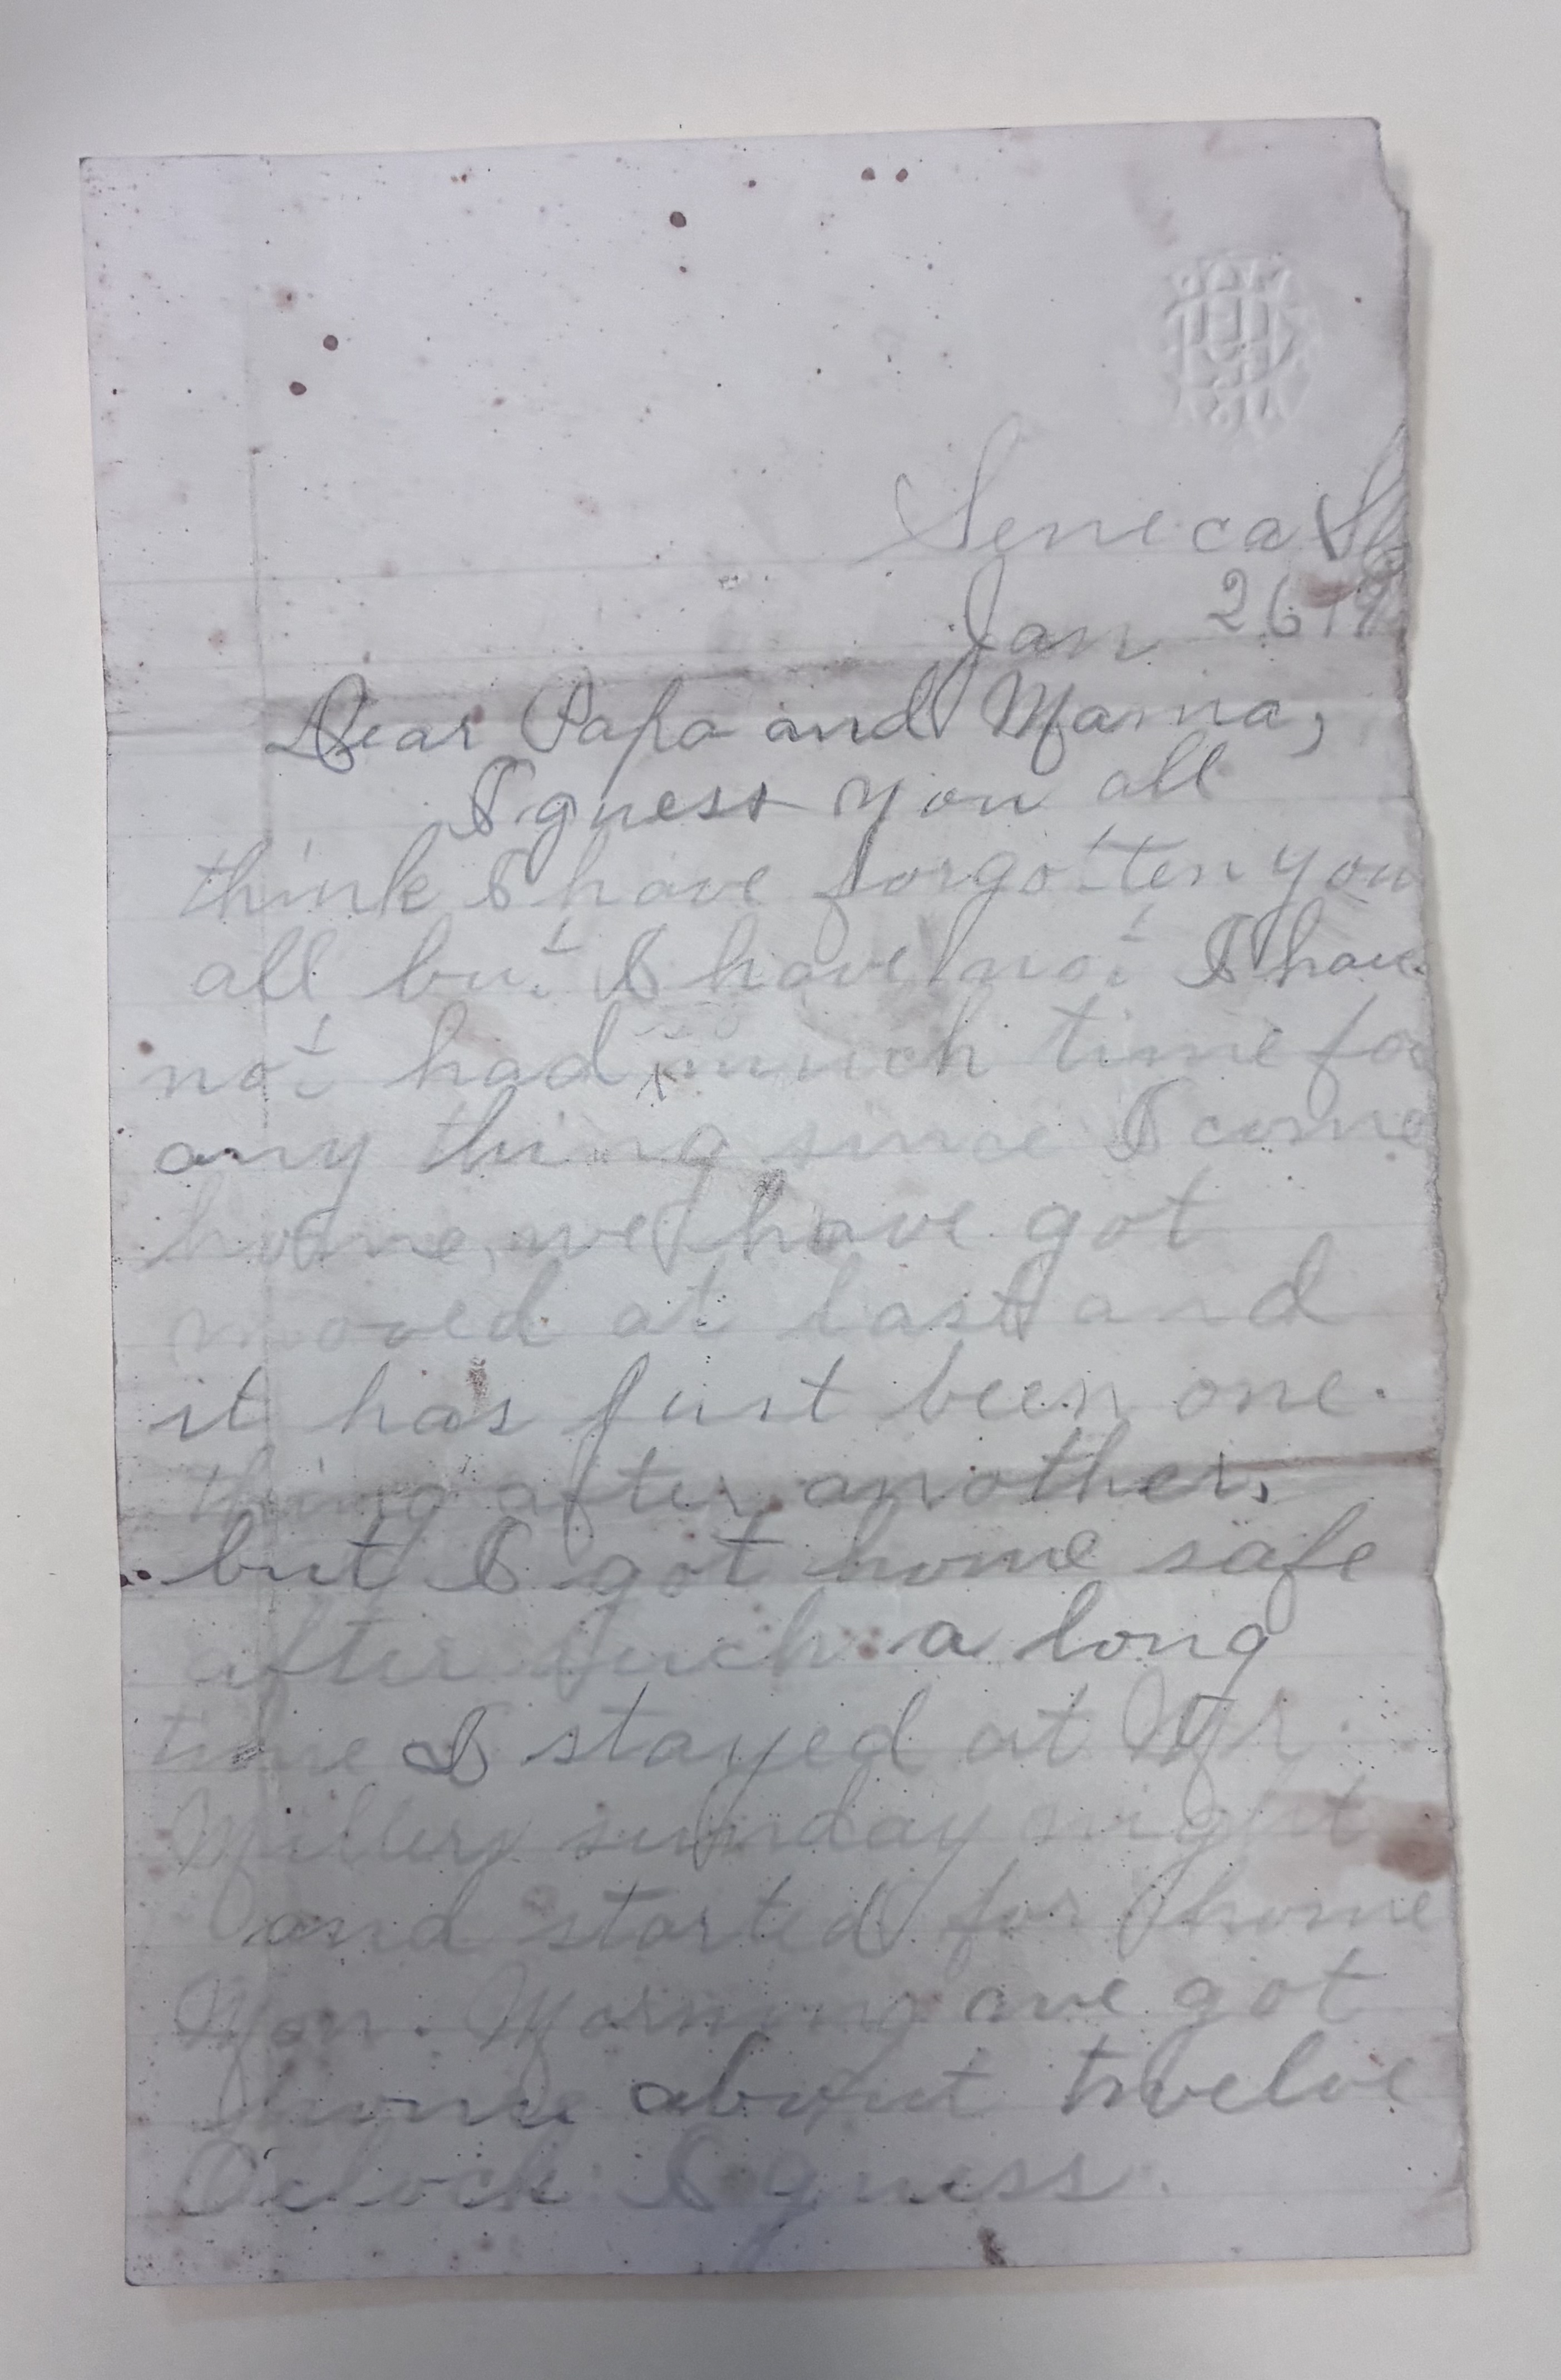 Seneca
Jan 26
Dear Papa and Mama,
I guess you all
think I have forgotten you
all but I have not I have
not had much time for
any thing since I come
home, we have got
moved at last and
it has just been one
thing after another,
but I got home safe
after such a long
time I stayed at Mr.
Millers sunday night
and started for home
Mon. Morning we got
home about twelve
Oclock I guess.